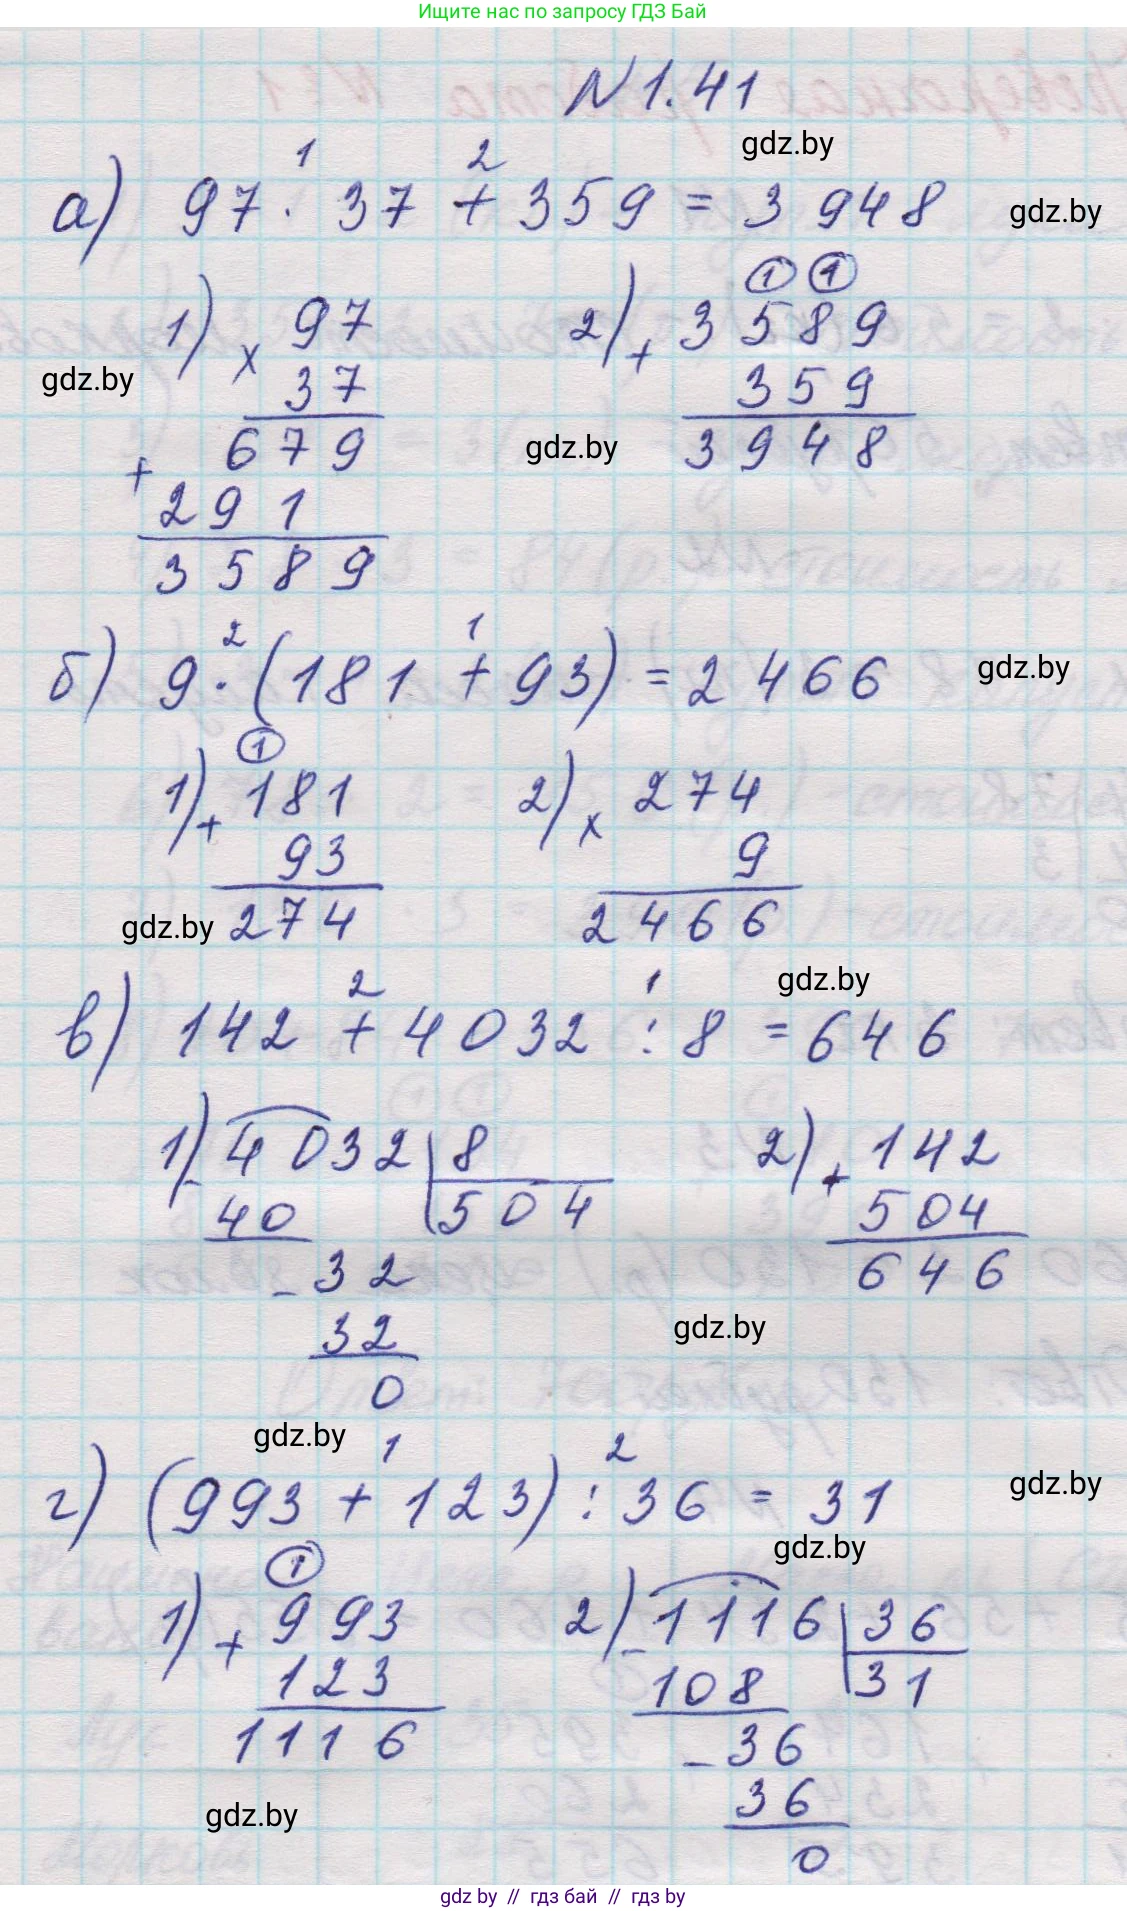 Ищите нас по запросу ГДЗ Бай
N 1.41
gdz.by
1 2
а) 97 · 37 + 359 = 3948
gdz.by
1) × 97
37
679
+
291
3589
gdz.by
1 1
2) + 3589
359
3948
gdz.by
2 1
б) 9 · (181 + 93) = 2466
gdz.by
1
1) + 181
93
274
gdz.by
2) × 274
9
2466
gdz.by
2 1
в) 142 + 4032 : 8 = 646
1) - 4032 | 8
40 504
- 32
32
0
2) + 142
504
646
gdz.by
gdz.by
1 2
г) (993 + 123) : 36 = 31
gdz.by
gdz.by
1
1) + 993
123
1116
gdz.by
2) - 1116 | 36
108 31
- 36
36
0
gdz by // гдз бай // gdz by